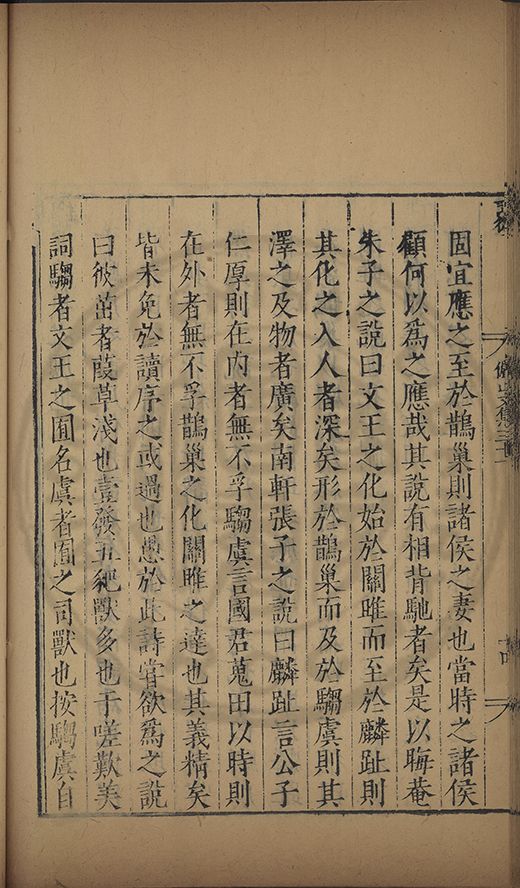 固宜應之至於鵲巢則諸侯之妻也當時之諸侯
顧何以爲之應哉其說有相背馳者矣是以晦菴
朱子之說曰文王之化始於關雎而至於麟趾則
其化之入人者深矣形於鵲巢而及於騶虞則其
澤之及物者廣矣南軒張子之說曰麟趾言公子
仁厚則在內者無不孚騶虞言國君蒐田以時則
在外者無不孚鵲巢之化關雎之達也其義精矣
皆未免於讀序之或過也愚於此詩嘗欲爲之說
曰彼茁者葭草淺也壹發五豝獸多也于嗟歎美
詞騶者文王之囿名虞者囿之司獸也按騶虞自